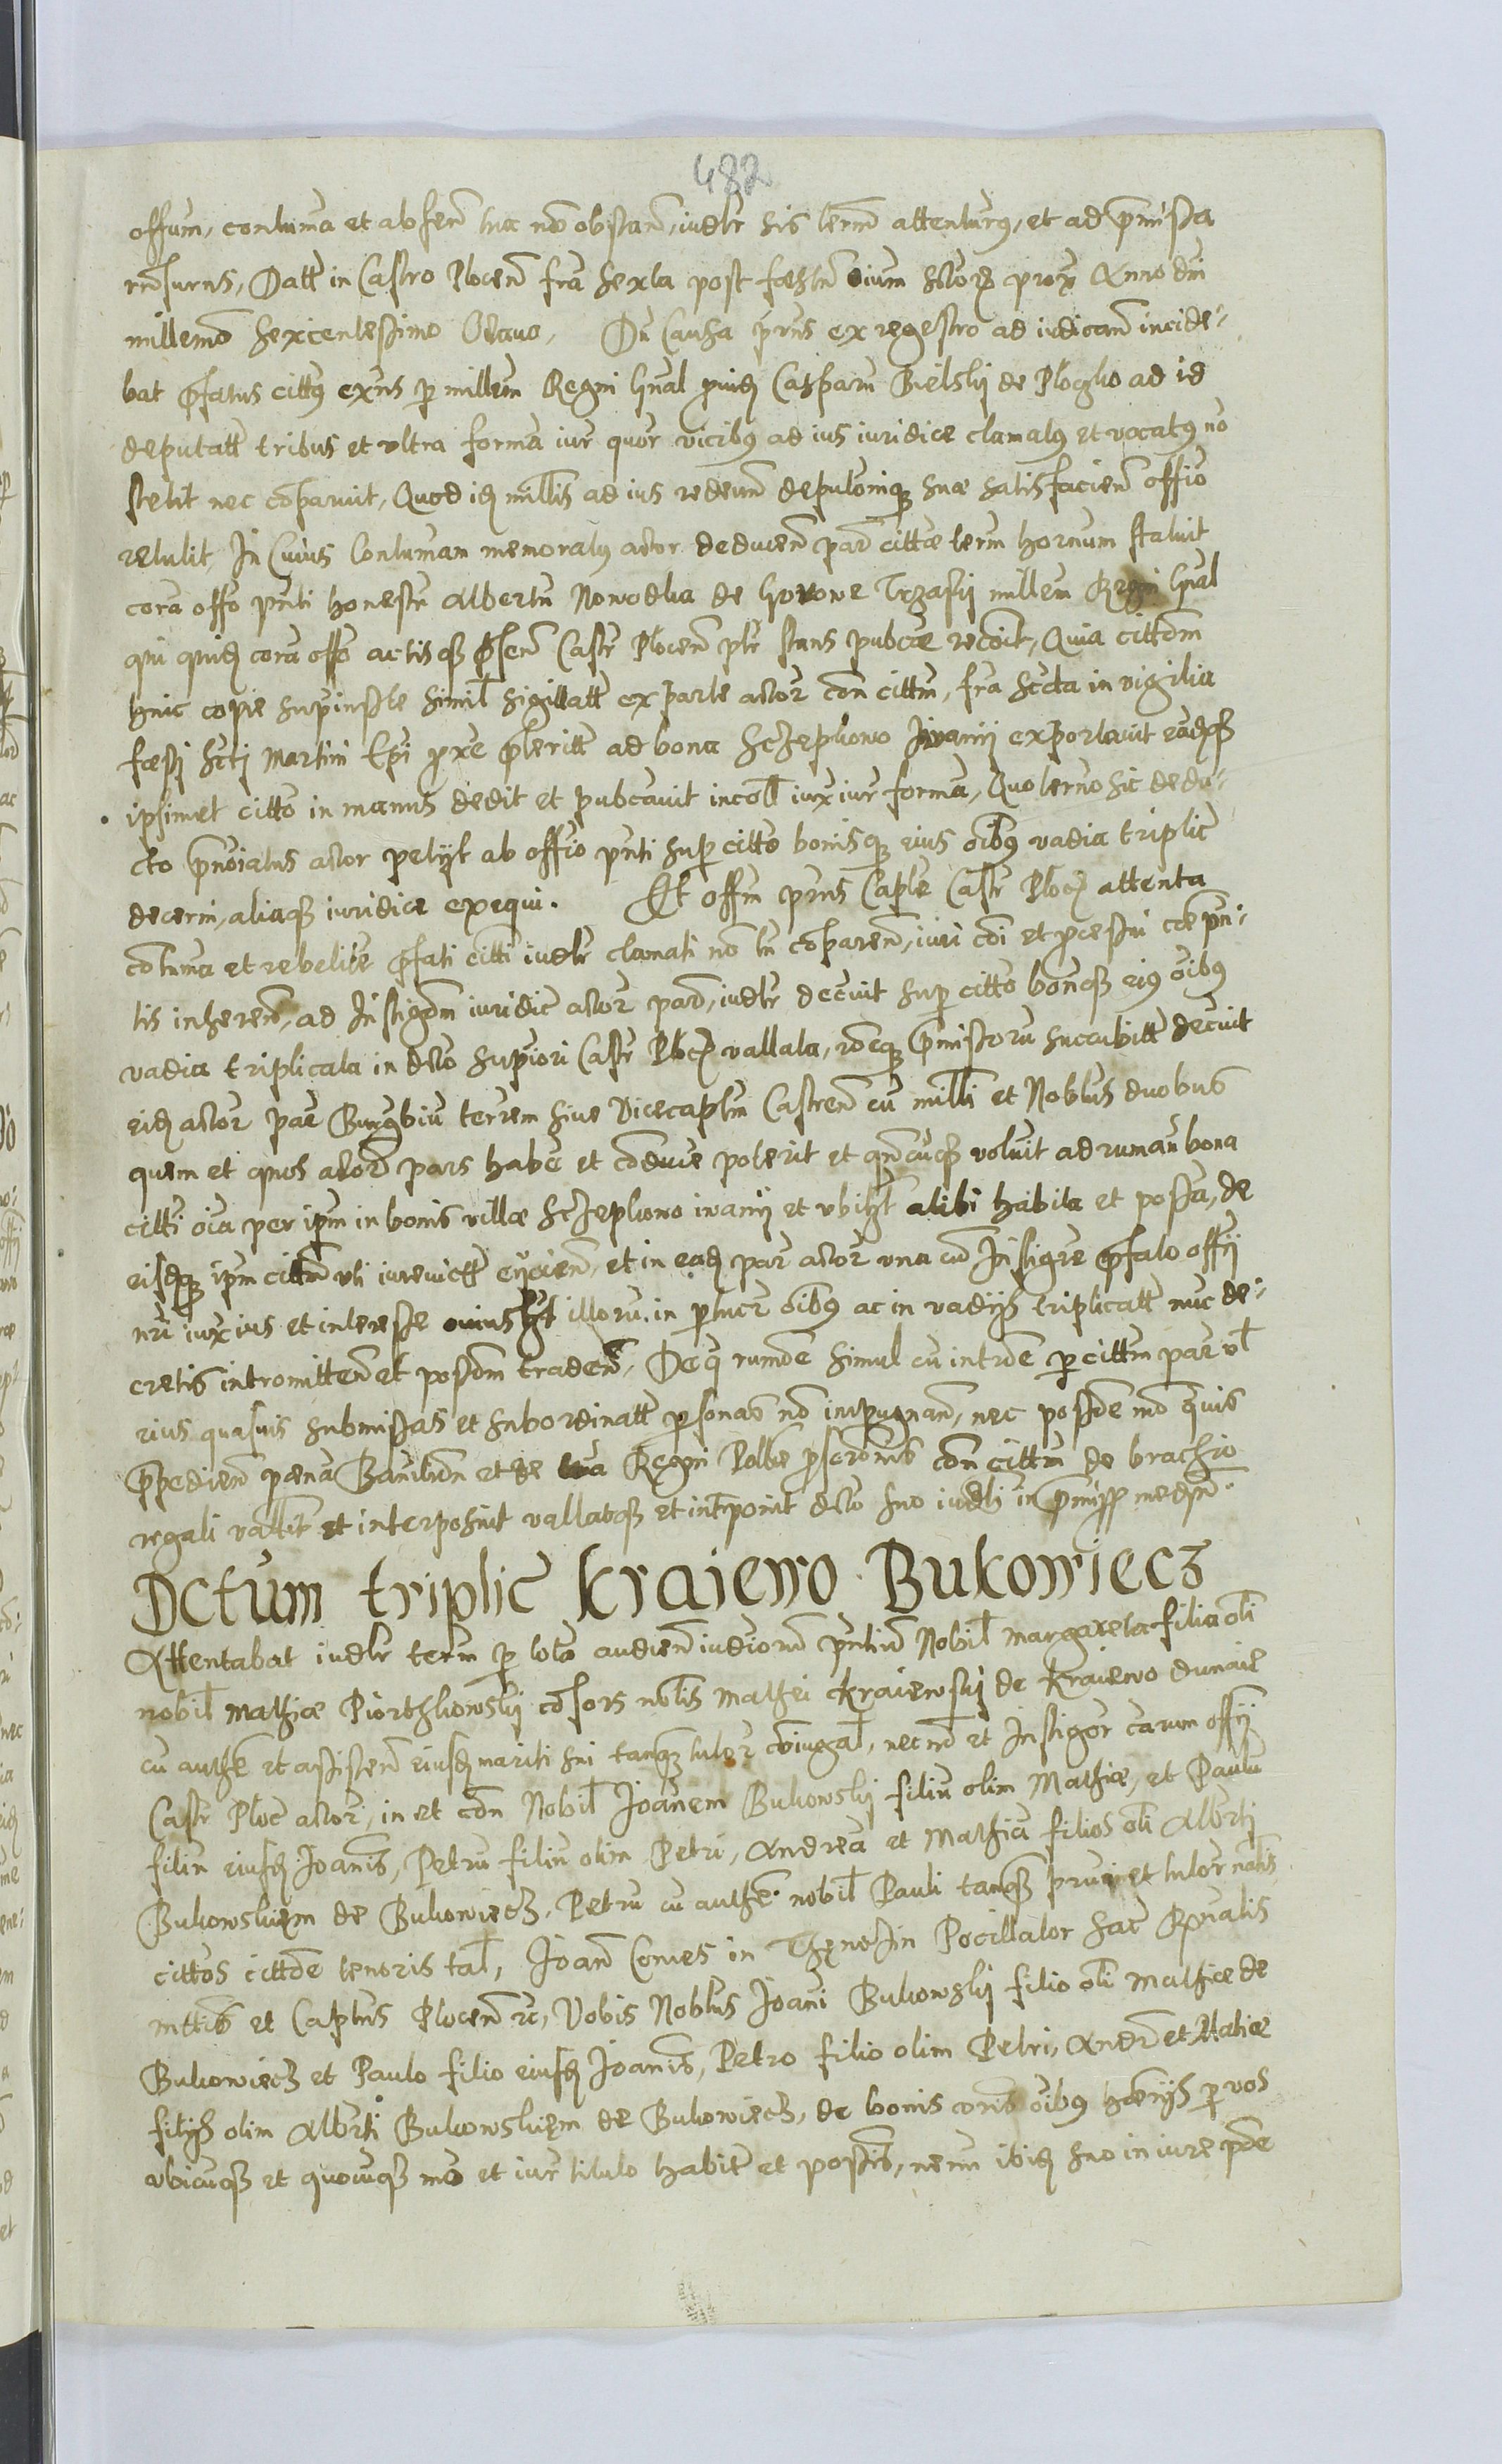 482
offum, contuma et absen tua no obstan, iudlr sis termi attenturus, et ad pmissa
rnsurus, Datt in Castro Plocen fra sexta post festu oium sctoru prox Anno dni
millemo sexcentesimo Octauo, Du Causa prns ex regestro ad iudicam incide-
bat pfatus cittus exns p millem Regni Gnal puid Caspam Bielsky de ad id
deputatt tribus et ultra forma iur quor vicibus ad ius iuridice clamatus et vocatus no
stetit nec coparuit, Quod id millis ad ius redeun deputonique sua satisfacien offio
retulit, In Cuius contumam memoratus actor deducen par citta term hornum statuit
cora offo pnti honestu Albertu Nowodka de millem Regni Gnal
qui quid cora offo actisq psen Castr Plocen ptr stans pubce recoit, Quia cittom
huic copie supinste simil sigillatt ex parte actor con cittm, fra scda in vigilia
festi scti Martini Epi pxe pteritt ad bona Iwanij exportauit eadq
ipsimet citto in manus dedit et pubcauit incoll iux iur forma, Quo termo sic dedu-
cto pnoiatus actor petyt ab offio pnti sup citto bonisq eius oibus vadia triplic
decerni, aliaq iuridice exequi. Et offm prns Captle Castr Ploc attenta
contuma et rebelite pfati citti iudlr clamati no tn coparen, iuri coi et pcessui coe pn-
tis inheren, ad Instigom iuridic actor pard, iudlr decuit sup citto bonq eius oibus
vadia triplicata in dcto supiori Castr Ploc vallata, roeq pmissoru succubitt decuit
eid actor par Burgbiu terrem siue Vicecaptm Castren cu milli et Noblus duobus
quem et quos actor pars habe et conduce poterit et qncuq voluit ad rumam bona
citti oia per ipm in bonis villæ iwanij et ubilzt alibi habita et possa, de
eisdq ipm cittm uti iureuictt eijcien, et in ead par actor una cu Instigre pfato offij
nri iux ius et interesse cuiuslzt illoru in plucr oibus ac in vadijs triplicatt nuc de-
cretis intromitten et possom traden, Deq rumoe simul cu introe p cittm par vl
eius quasuis submissas et subordinatt psonas no impugnan, nec possoe mo quis
ppedien pæna Baniton et de Regni Poloe pscronis con cittm de brachio
regali vallit et interposuit vallatq et intponit dcto suo iudli in pmissq medn.
Dctum triplic Kraiewo Bukowiecz
Attentabat iudlr term p tota audien iudiorum pntiu Nobil Margareta filia oli
nobil Mathiæ Piorthkowsky cosors noblis Mathei Kraiewsky de Kraiewo dunaie
cu authe et assisten eiusd mariti sui tanq tutor coniugal, nec no et Instigor carum offij
Castr Ploc actor, in et con Nobil Joanem Bukowsky filiu olim Mathiæ, et Paulu
filiu eiusd Joanis, Petru filiu olim Petri, Andrea et Mathia filios oli Alberti
Bukowskiem de Bukowiecz, Petru cu authe nobil Pauli tanq prui et tutor natlis
cittos cittoe tenoris tal, Joan Comes in Pocillator Sac Rgnalis
mttis et Captus Plocen rc, Vobis Noblus Joani Bukowsky filio oli Mathiæ de
Bukowiecz et Paulo filio eiusd Joanis, Petro filio olim Petri, Andre et Matiæ
filijs olim Alberti Bukowskiem de Bukowiecz, de bonis vris oibus gnrijs p vos
ubicuq et quocuq mo et iur titulo habit et possis, nemi ibid suo in iure pde